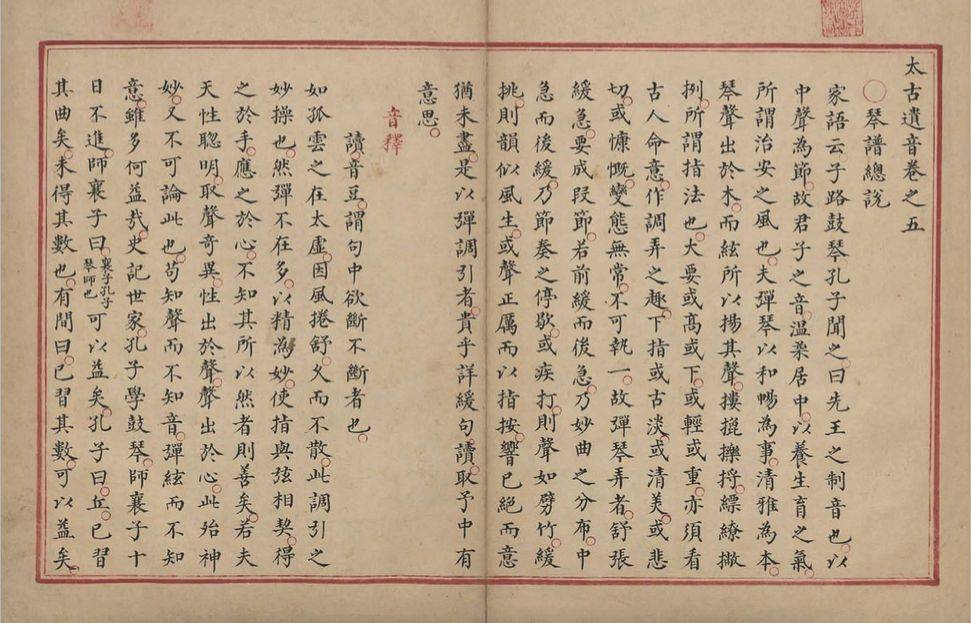 太古遺音卷之五
琴譜總說
家語云子路鼓琴孔子聞之曰先王之制音也以
中聲為節故君子之音溫柔居中以養生育之氣
所謂治安之風也夫彈琴以和暢為事清雅為本
琴聲出於木而絃所以揚其聲摟擽捋縹繚撇
捌所謂指法也大要或高或下或輕或重亦須看
古人命意作調弄之趣下指或古淡或清美或悲
切或慷慨變態無常不可執一故彈琴弄者舒張
緩急要成段節若前緩而後急乃妙曲之分布中
急而後緩乃節奏之停歇或疾打則聲如劈竹緩
挑則韻似風生或聲正厲而以指按響已絕而意
猶未盡是以彈調引者貴乎詳緩句讀取予中有
意思
音釋
讀音豆謂句中欲斷不斷者也
如孤雲之在太虛因風捲舒久而不散此調引之
妙操也然彈不在多以精為妙使指與弦相契得
之於手應之於心不知其所以然者則善矣若夫
天性聰明取聲奇異性出於聲聲出於心此殆神
妙又不可論此也苟知聲而不知音彈絃而不知
意雖多何益哉史記世家孔子學鼓琴師襄子十
日不進師襄子曰襄子孔子琴師也可以益矣孔子曰丘已習
其曲矣未得其數也有間曰已習其數可以益矣